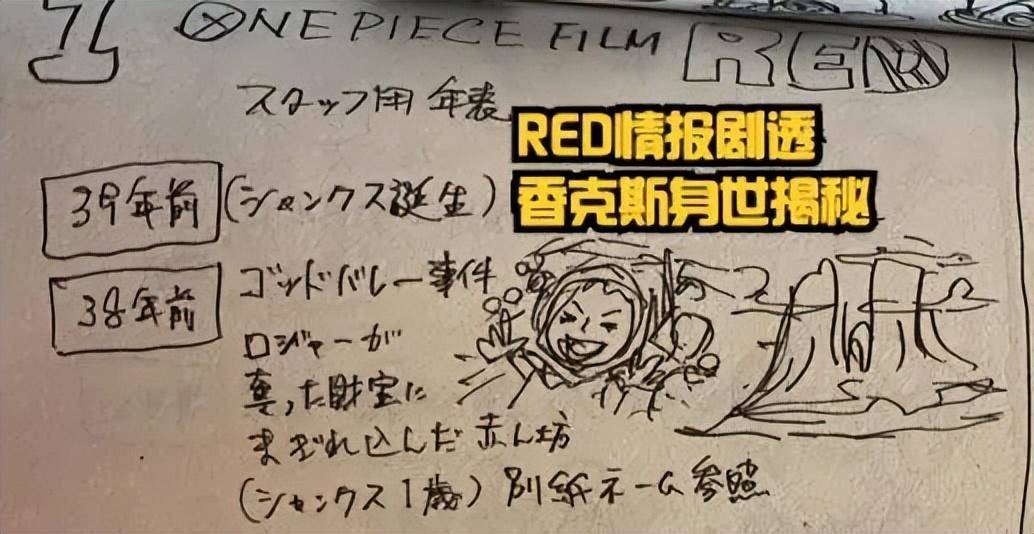 1 ⊗ ONE PIECE FILM RED
スタッフ用 年表
RED情报剧透
香克斯身世揭秘
39年前 (シャンクス誕生)
38年前 ゴッドバレー事件
ロジャーが
奪った財宝に
まぎれ込んだ 赤ん坊
(シャンクス1歳) 別紙ネーム参照